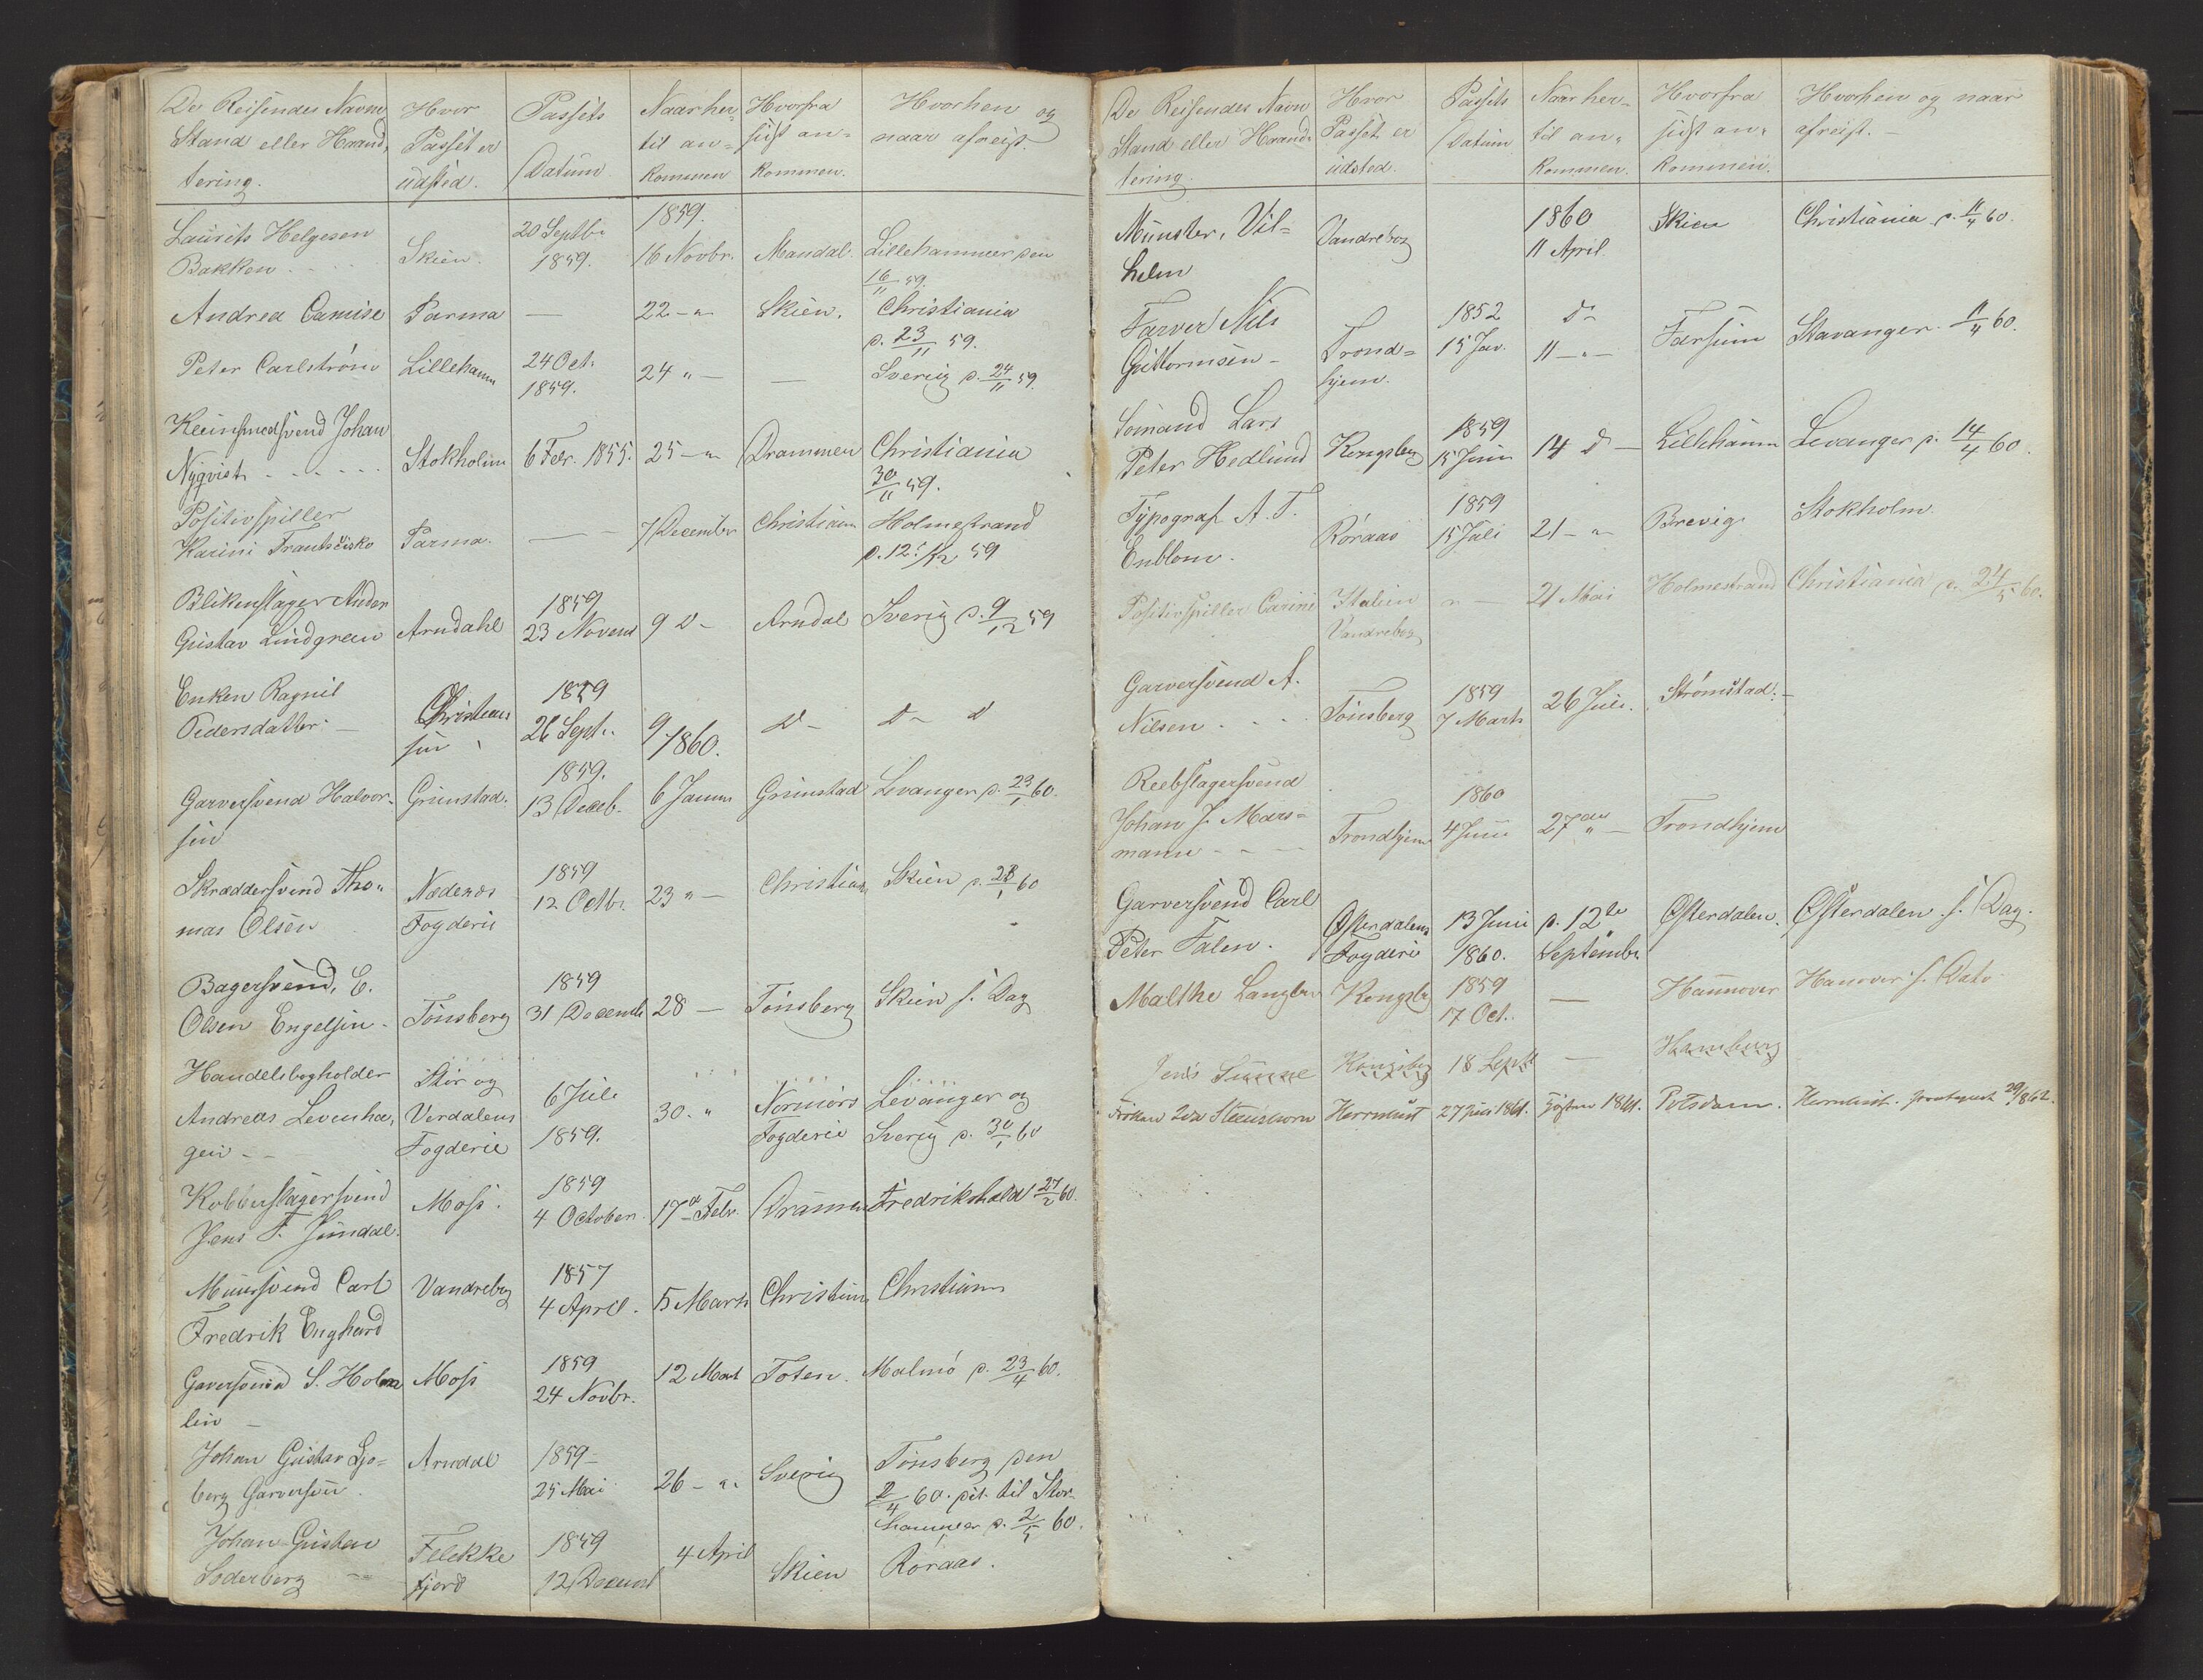 De Reisendes Navn Hvor Passets Naar her- Hvorfra Hvorhen og
Stand eller Hand- Passet er Datum til an- sidst an- naar afreist.
tering. udsted. kommen kommen.
1859.
Laurits Helgesen 20 Septbr
Bakken Skien. 1859. 16 Novbr. Mandal. Lillehammer den
16/11 59.
Andrea Camise Parma — 22 - " - Skien. Christiania
d. 23/11 59.
Peter Carlström Lilleham 24 Oct. 24 " — — Sverig d. 24/11 59.
1859.
Kleinsmedsvend Johan
Nyqvist Stokholm 6 Febr. 1855. 25 - " - Drammen Christiania
30/11 59.
Positivspiller
Karini Frantscisko Parma. — 7 December Christian Holmestrand
d. 12/12 59
Blikenslager Ander 1859
Gustav Lindgreen Arndahl 23 Novem 9 d - Arndal Sverig d. 9/12 59
Enken Ragnil 1859
Pedersdatter. Christian 26 Sept. 9 d - d - d
sun 1860.
1859.
Garversvend Halvor- Grimstad. 13 Deceb. 6 Januar Grimstad Levanger d. 23/1 60.
sen
Skræddersvend Tho- Nedenes 1859
mas Olsen Fogderie 12 Octbr. 23 " — Christian Skien d. 28/1 60
Bagersvend, E. 1859
Olsen Engelsen Tönsberg 31 Decemb 28 — Tönsberg Skien s. Dag
Handelsbogholder Stör og
Andreas Levenha- Verdalens 6 Juli 30. " Normörs Levanger og
gen Fogderie 1859. Fogderie Sverig d. 30/1 60
Kobberslagersvend 1859
Jens F. Sundal. Moss. 4 October. 17d Febr. Dramen Fredrikshald 27/2 60.
Muursvend Carl Vandrebog 1857
Fredrik Enghard 4 April. 5 Marts Christian Christian
Gaversvend S. Holm- Moss 1859
lin 24 Novbr. 12 Mart Toten. Malmö d. 23/4 60.
Johan Gustav Sjo- Arndal 1859 - Tönsberg den
berg Garversven. 25 Mai 26 - " - Sverig 2/4 60. til
d. 2/5 60.
Johan Gustav Flekke 1859
Soderberg fjord 12 Decembr 4 April Skien Röraas.
De Reisendes Navn Hvor Passets Naar her- Hvorfra Hvorhen og naar
Stand eller Hand- Passet er Datum til an- sidst an- afreist. -
tering. udsted. kommen. kommen.
Münster, Vil- Vandrebog 1860 Skien Christiania d. 11/4 60.
helm 11 April.
Farver Nils 1852 d -
Guttormsen - Trond- 15 Jan. 11 - " - Farsum Stavanger. 11/4 60.
hjem.
Sömand Lars 1859
Peter Hedlund Kongsberg 15 Juni 14 d - Lilleham Levanger d. 14/4 60
Typograf A. T. 1859
Enblom. Röraas 15 Juli 21 - " - Brevig. Stokholm
Positivspiller Carini Italien " - 21 Mai Holmestrand Christiania d. 24/5 60.
Vandrebog
Garversvend A. 1859
Nilsen Tönsberg 7 Marts 26 Juli. Strömstad. -
Reebslagersvend
Johan J. Mars- 1860
mann Trondhjem 4 Juni 27 " — Trondhjem
Garversvend Carl
Peter Falen. Østerdalens 13 Juni d. 12te Østerdalen. Østerdalen s. Dag.
Fogderi 1860. Septembr
Malthe Langber Kongsb 1859 — Hannover Hanover s. Dato
17 Oct.
Jens Sunne Kongsberg 18 Septr — Hamburg
Fröken Steenshorn Herrnhut 27 Juli 1861. 1861. Potsdam. Herrnhut. 29/ 862.